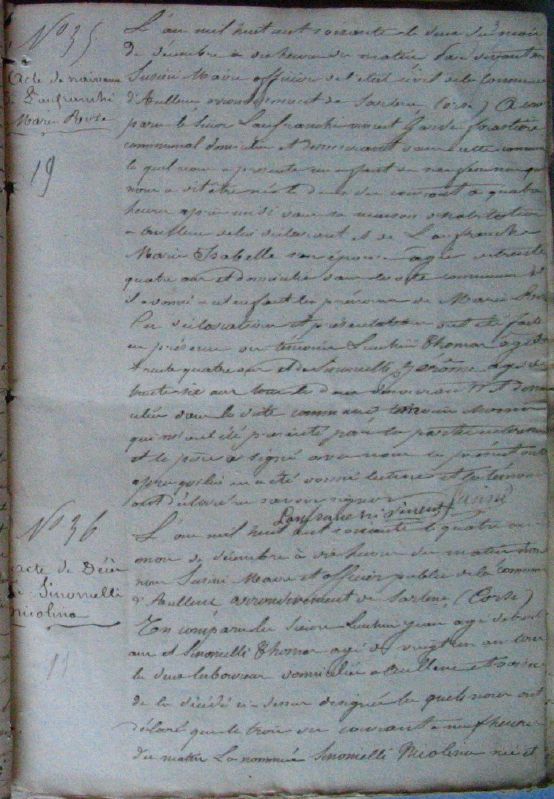 No 35
Acte de naissance
de Lanfranchi
Marie Rose
19
L'an mil huit cent soixante le deux du mois
de décembre à dix heures du matin par devant nous
Susini Maire officier de l'état civil de la Commune
d'Aullene arrondissement de Sartene (Corse) a com
paru le sieur Lanfranchi vincent Garde forestier
communal domicilié et demeurant dans cette commune
le quel nous a présenté un enfant du sexe feminin qu
nous a dit être né le deux du courant à quatre
heures après midi dans sa maison d'habitation
à Aullene de lui déclarant et de Lanfranchi
Marie Isabelle son épouse agée de trente
quatre ans et domiciliée dans la dite commune
donné à cet enfant les prénoms de Marie Rose
Les déclaration et présentation ont été faites
en présence des témoins Thomas agé de
trente quatre ans et de Sinonelli Jérôme agé de
trente six ans tous les deux domi
ciliés dans la dite commune
qui m'ont été présentés par la partie
et le père a signé avec nous le présent acte
après qu'il en a été donné lecture et les témoins
ont déclaré ne savoir signer
Lanfranchi Vincent Susini
No 36
acte de Décès
de Sinonelli
Nicolina
11
L'an mil huit cent soixante le quatre du
mois de décembre à dix heures du matin
nous Susini Maire et officier public de la commune
d'Aullene arrondissement de Sartene (Corse)
Ont comparu les Sieurs Jean agé de
ans et Sinonelli Thomas agé de vingt un ans tous
les deux laboureurs domiciliés à Aullene et
de la décédée ci-dessus désignée les quels nous ont
déclaré que le trois du courant à neuf heures
du matin La nommée Sinonelli Nicolina née et